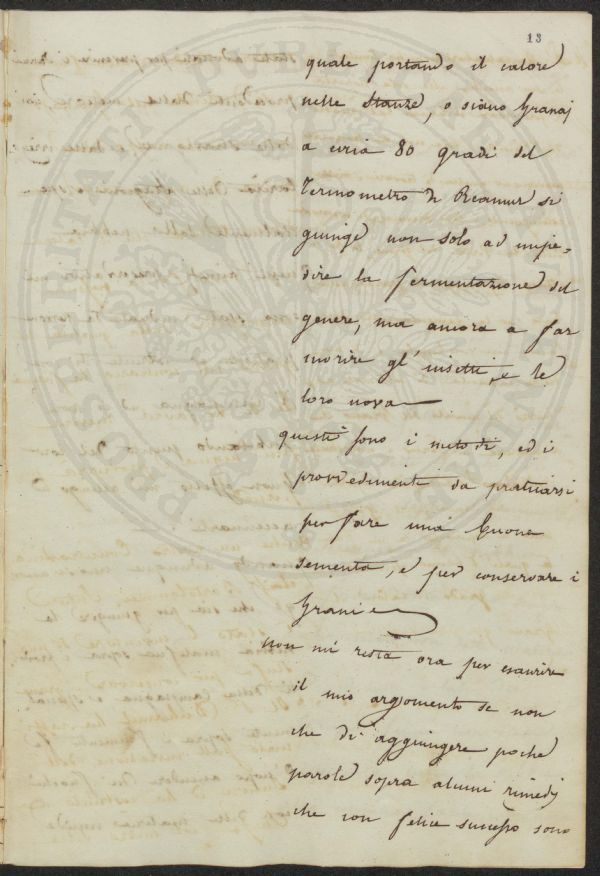 13
quale portando il calore
nelle stanze, o siano Granaj
a circa 80 gradi del
Termometro di Reamur si
giunge non solo ad impe=
dire la fermentazione del
genere, ma ancora a far
morire gl'insetti, e le
loro uova
questi sono i metodi, ed i
provvedimenti da praticarsi
per fare una buona
sementa, e per conservare i
Grani
non mi resta ora per esaurire
il mio argomento se non
che di aggiungere poche
parole sopra alcuni rimedj
che con felice successo sono
PROSPERITATI PUBLICAE